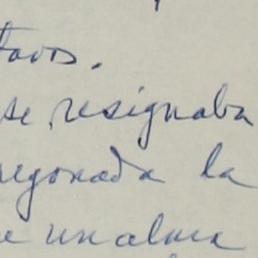 tavos.
se resignaba
regonada la
e un alma